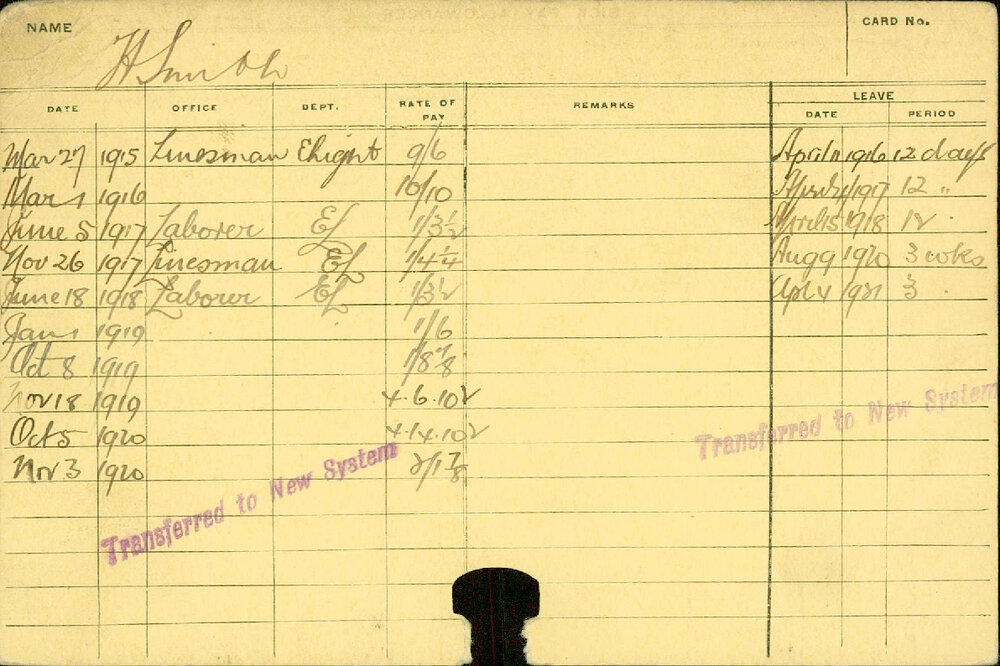 NAME H Smith CARD No.
DATE OFFICE DEPT. RATE OF PAY REMARKS LEAVE
DATE PERIOD
Mar 27 1915 Linesman Elight 9/6 April 11 1916 12 days
Mar 1 1916 10/10 1917 12 "
June 5 1917 Laborer EL 1/3½ April 15 1918 12
Nov 26 1917 Linesman EL 1/4¼ Aug 9 1920 3 wks
June 18 1918 Laborer EL 1/3½ Apl 4 1921 3
Jan 1 1919 1/6
Oct 8 1919 1/8⅞
Nov 18 1919 4.6.10½
Oct 5 1920 4.14.10½
Nov 3 1920 2/1⅞
Transferred to New System
Transferred to New System